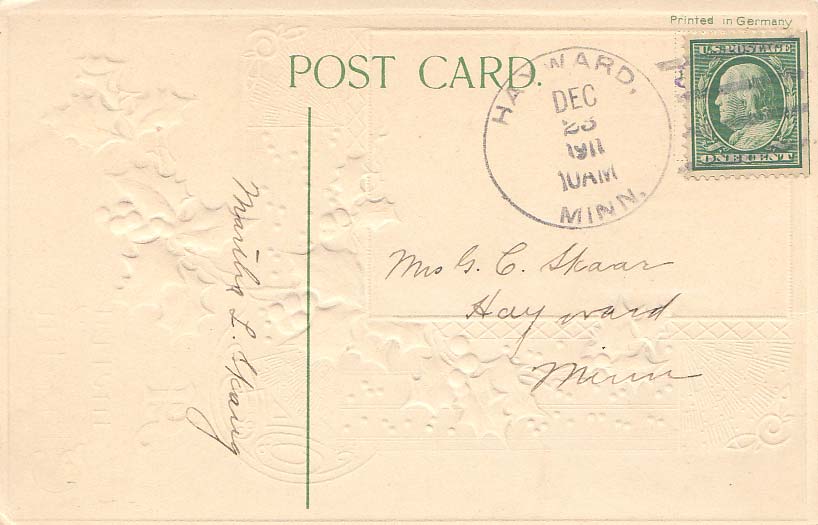 Printed in Germany
POST CARD.
HAYWARD,
DEC
23
1911
10AM
MINN.
U.S. POSTAGE
ONE CENT
Mrs G. C. Skaar
Hayward
Minn
L.